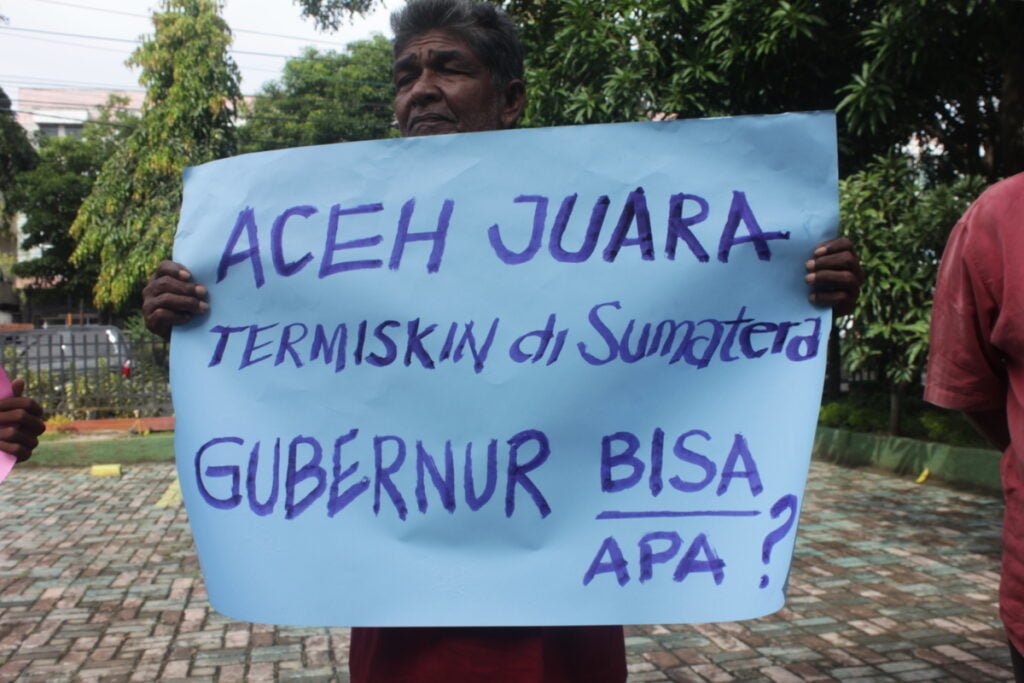 ACEH JUARA
TERMISKIN di Sumatera
GUBERNUR BISA
APA ?